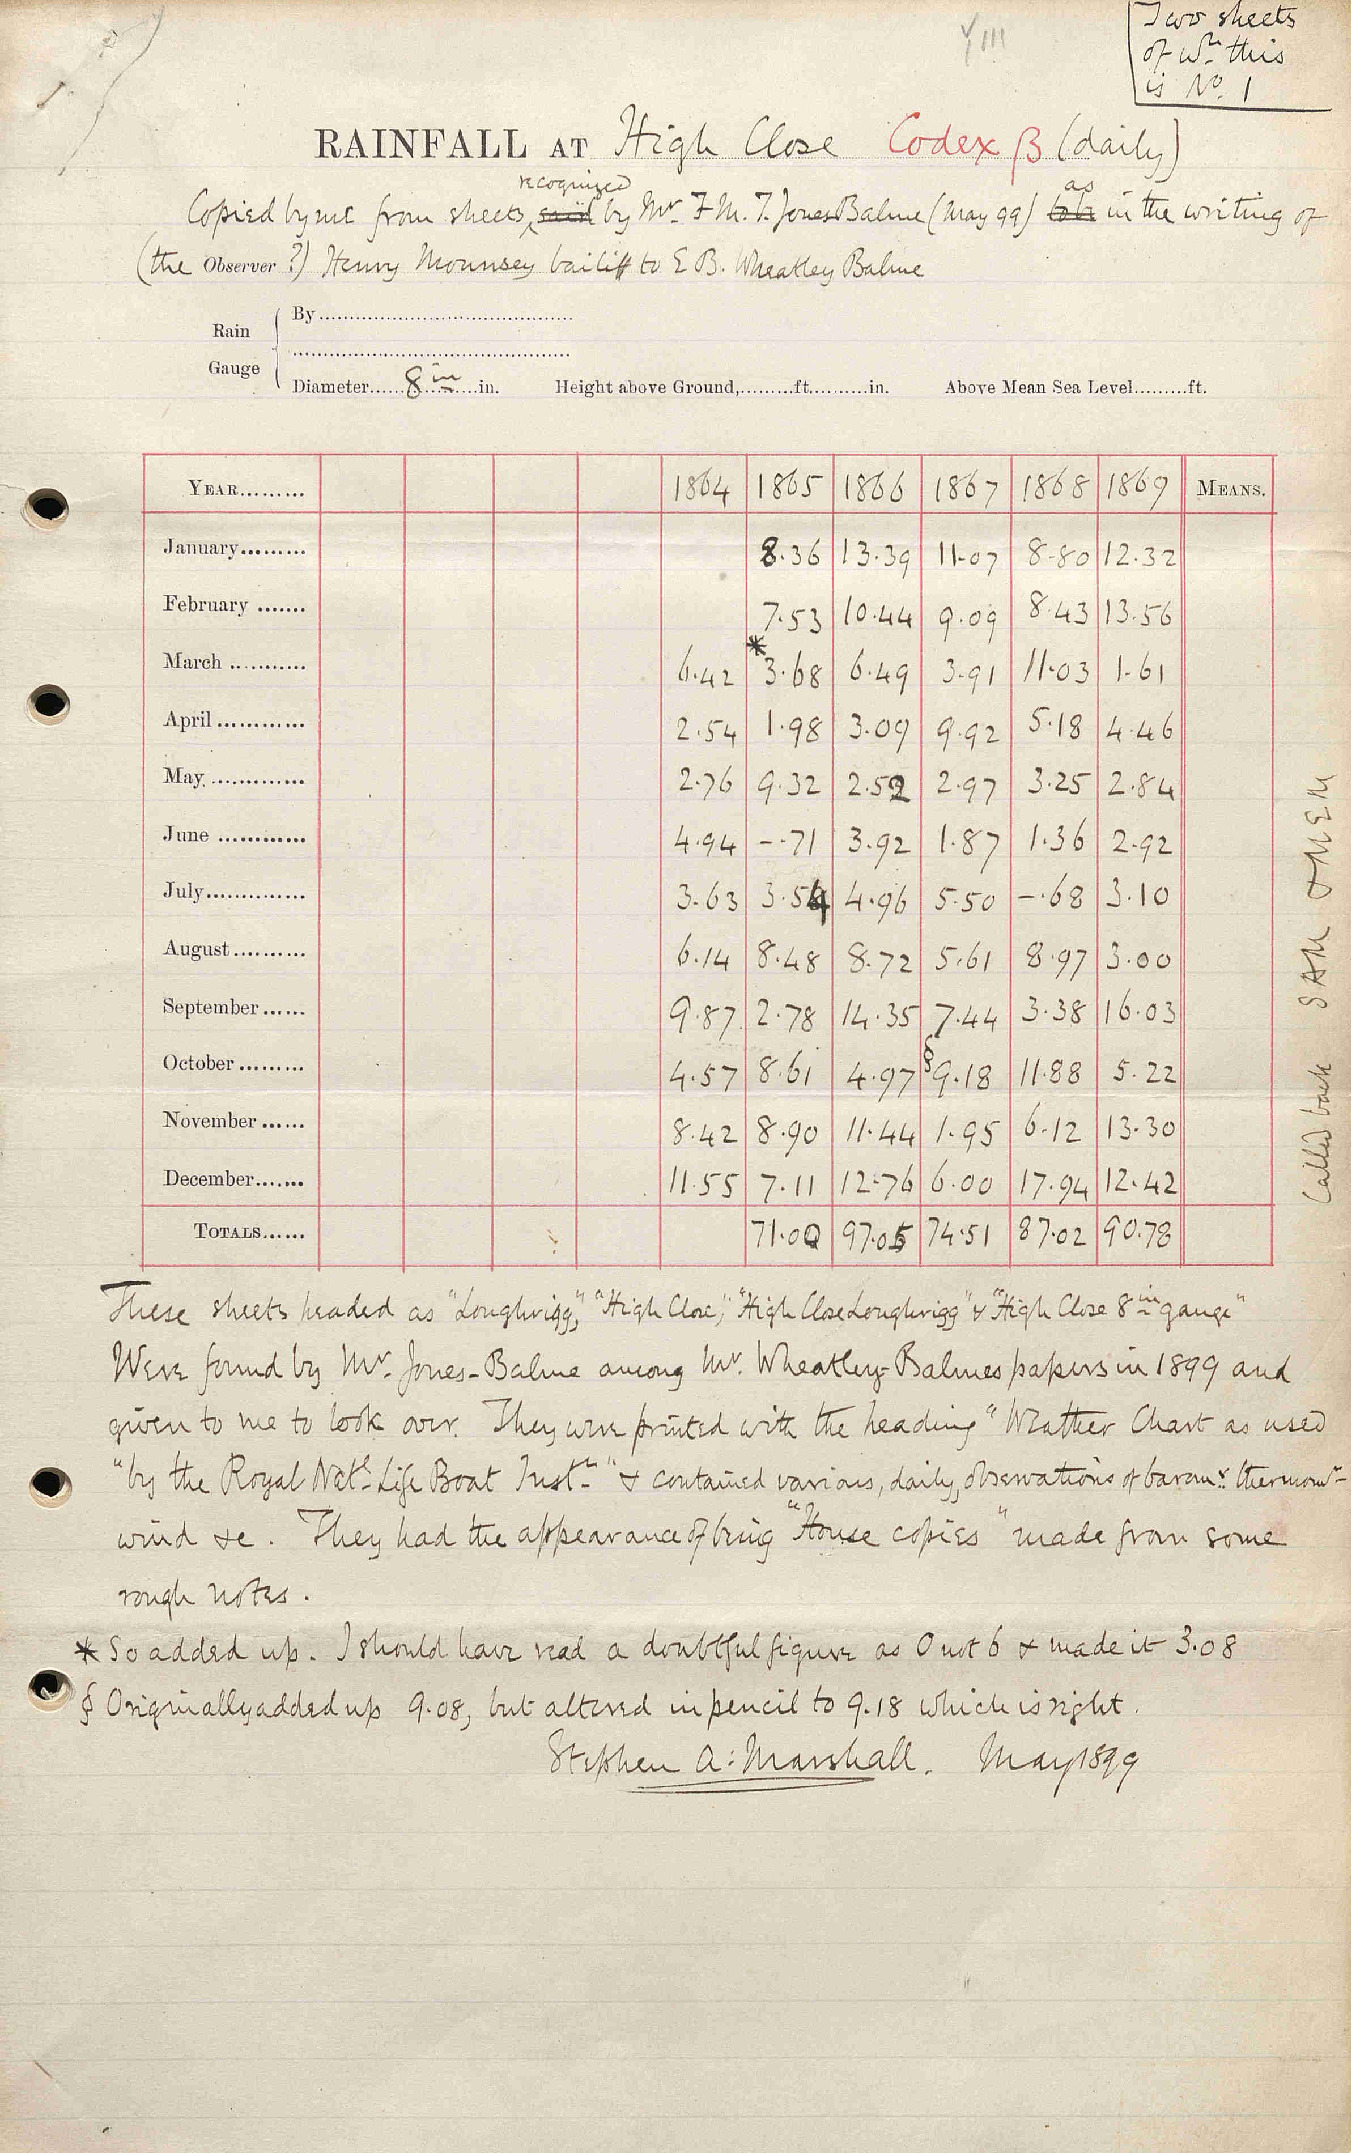 Two sheets
of wh. this
is No. 1
RAINFALL AT High Close Codex B (daily)
recognized as
Copied by me from sheets, said by Mr. F. M. T. Jones Balme (May 99) to be in the writing of
(the Observer ?) Henry Mounsey bailiff to E B. Wheatley Balme
Rain Gauge
By
Diameter 8 in in. Height above Ground, ft. in. Above Mean Sea Level ft.
YEAR 1864 1865 1866 1867 1868 1869 MEANS.
January 8.36 13.39 11.07 8.80 12.32
February 7.53 10.44 9.09 8.43 13.56
March 6.42 *3.68 6.49 3.91 11.03 1.61
April 2.54 1.98 3.09 9.92 5.18 4.46
May 2.76 9.32 2.52 2.97 3.25 2.84
June 4.94 -.71 3.92 1.87 1.36 2.92
July 3.63 3.54 4.96 5.50 -.68 3.10
August 6.14 8.48 8.72 5.61 8.97 3.00
September 9.87 2.78 14.35 7.44 3.38 16.03
October 4.57 8.61 4.97 §9.18 11.88 5.22
November 8.42 8.90 11.44 1.95 6.12 13.30
December 11.55 7.11 12.76 6.00 17.94 12.42
TOTALS 71.00 97.05 74.51 87.02 90.78
Called back SAM & MEM
These sheets headed as "Loughrigg," "High Close," "High Close Loughrigg" & "High Close 8 in gauge"
Were found by Mr. Jones-Balme among Mr. Wheatley-Balmes papers in 1899 and
given to me to look over. They were printed with the heading "Weather Chart as used
"by the Royal Natl. Life Boat Instn." & contained various, daily, observations of baromr. thermomr.
wind &c. They had the appearance of being "House copies" made from some
rough notes.
* So added up. I should have read a doubtful figure as 0 not 6 & made it 3.08
§ Originally added up 9.08, but altered in pencil to 9.18 which is right.
Stephen A. Marshall. May 1899